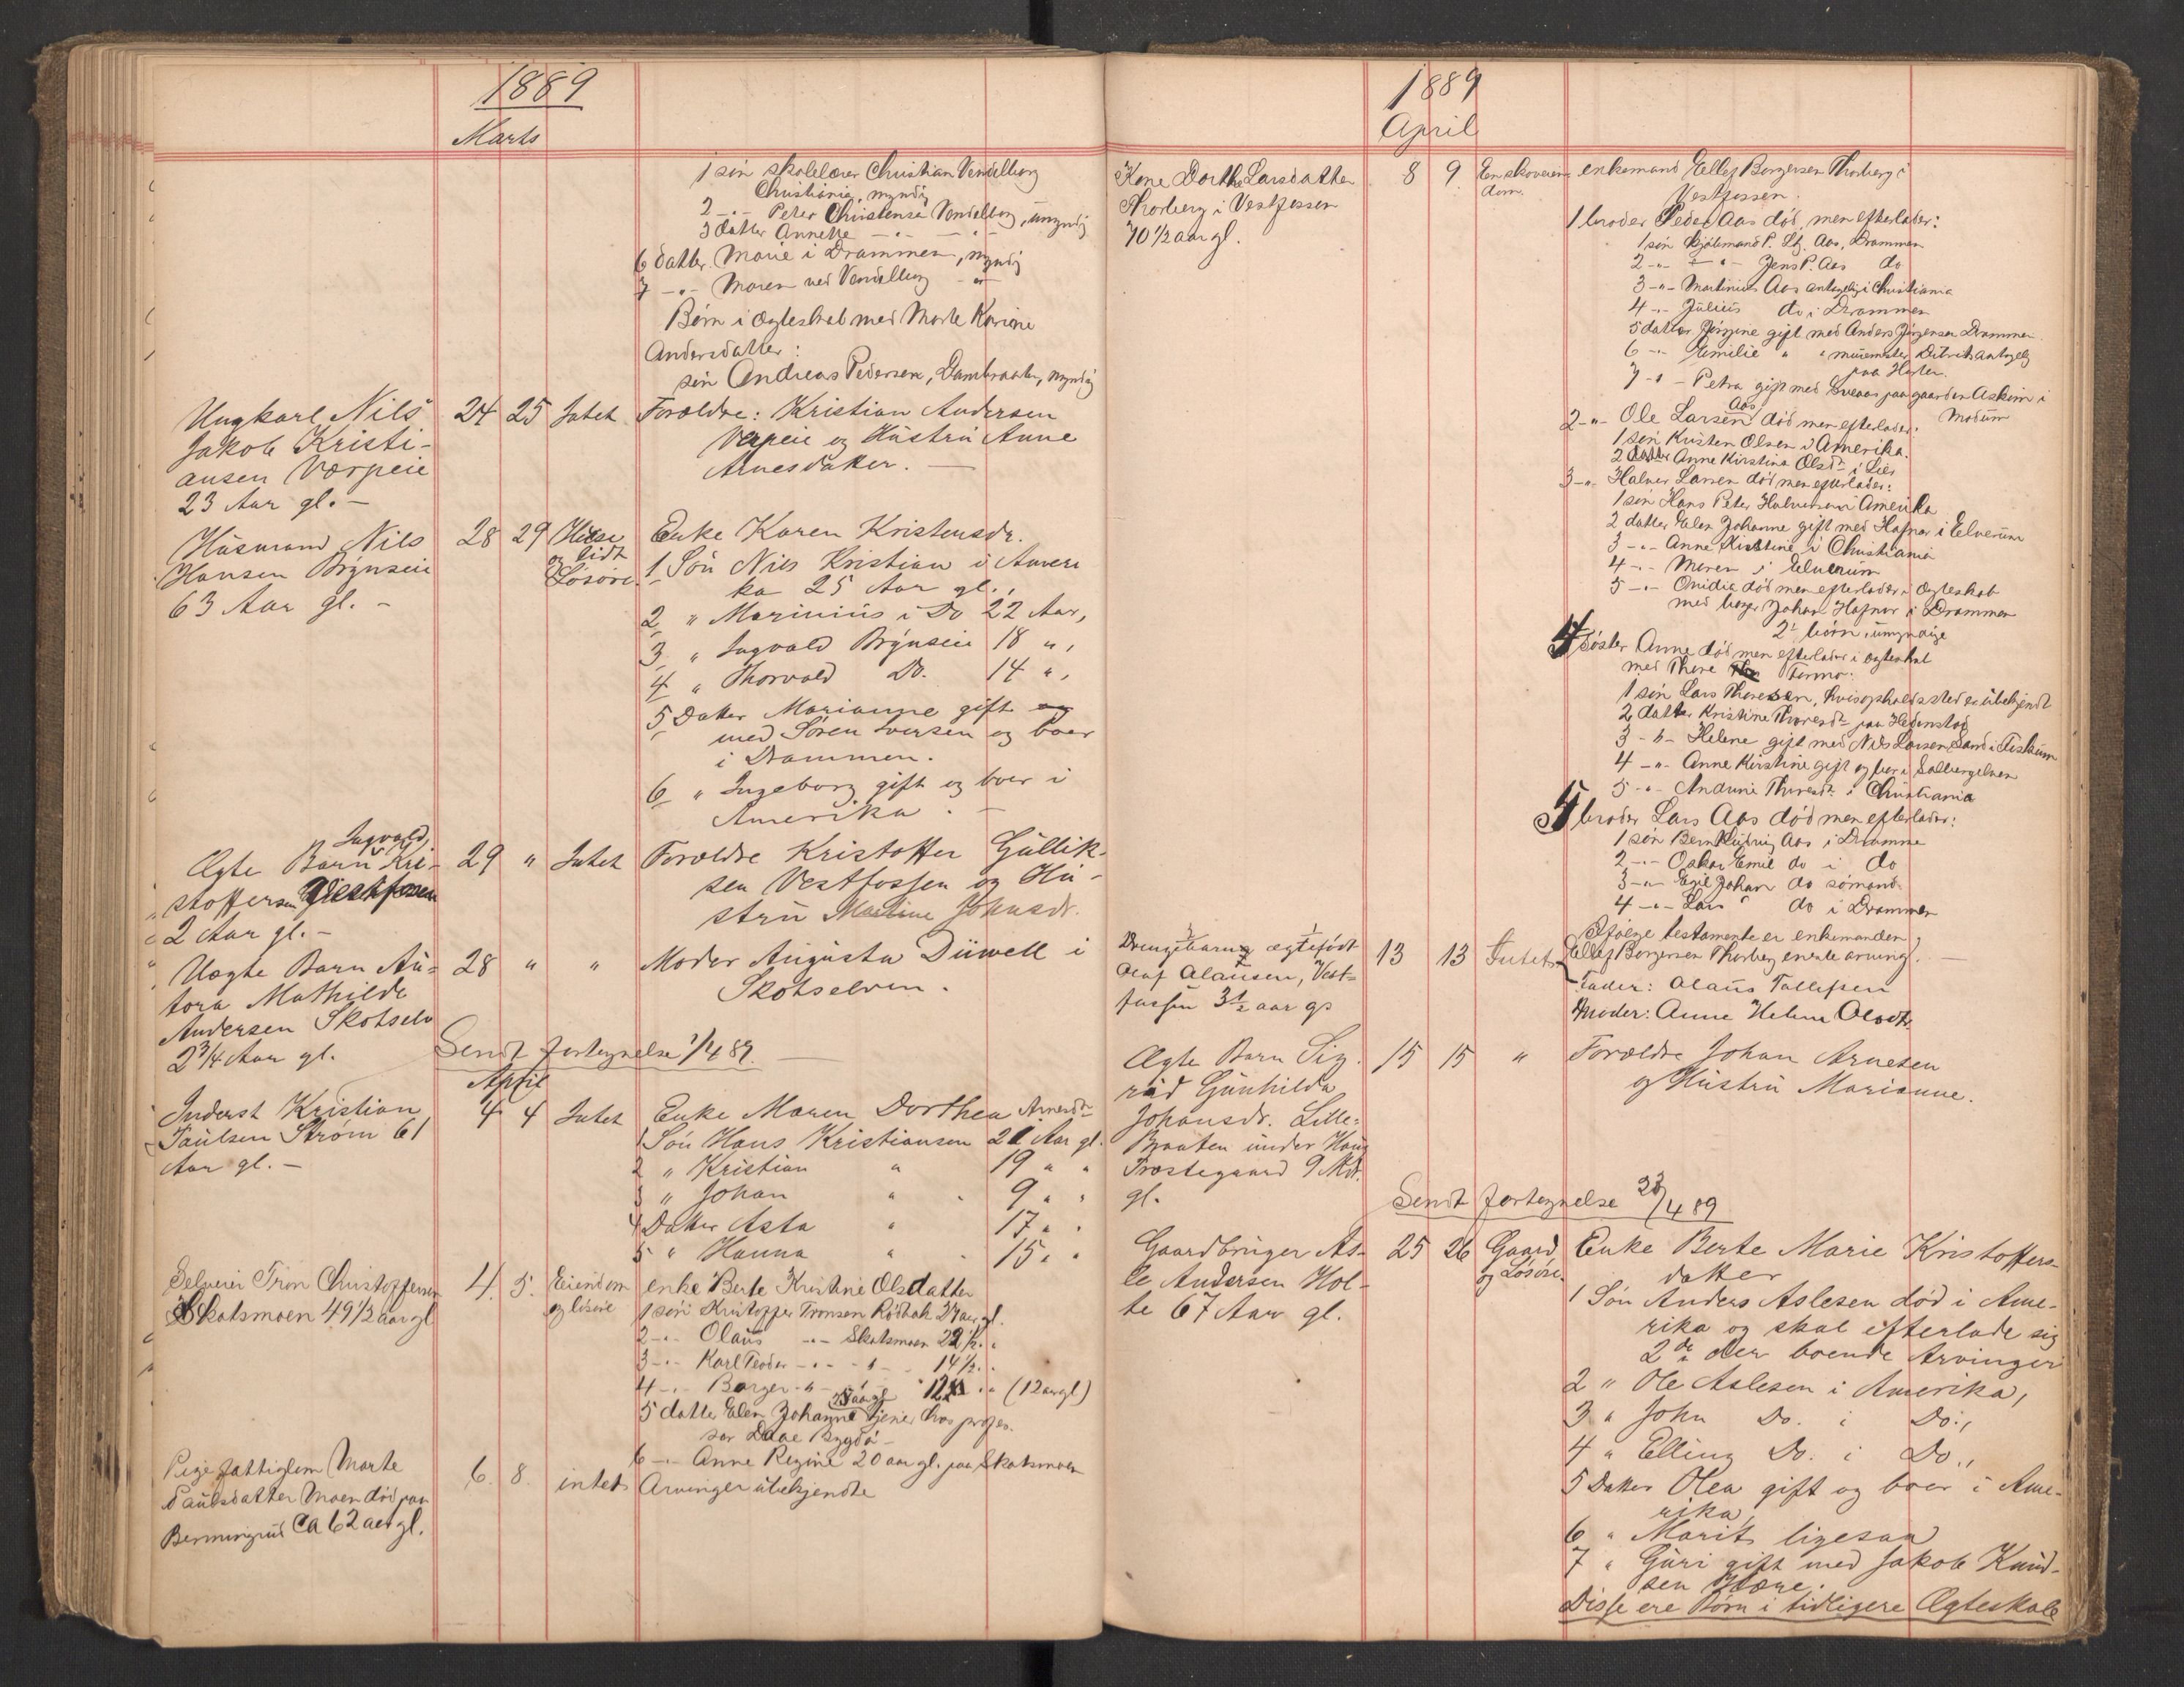 1889
Marts
1 søn skolelærer Christian Vendelborg
Christiania, myndig
2 -"- Peter Christensen Vendelborg, umyndig
3 datter Annette -"- -"-
6 datter Marie i Drammen, myndig
7 -"- Maren ved Vendelborg -"-
Børn i ægteskab med Marte Karine
Andersdatter:
søn Andreas Pedersen, Dambraaten, myndig
Ungkarl Nils
Jakob Kristi-
ansen Værpeie
23 Aar gl. -
24 25 Intet
Forældre: Kristian Andersen
Værpeie og Hustru Anne
Arnesdatter. -
Husmand Nils
Hansen Brynseie
63 Aar gl. -
28 29 Huse
og lidt
Løsøre
Enke Karen Kristensdr.
1 Søn Nils Kristian i Ameri
ka 25 Aar gl.,
2 " Marinius i Do 22 Aar,
3 " Ingvald Brynseie 18 ",
4 " Thorvald Do. 14 ",
5 Datter Marianne gift og
med Søren Iversen og boer
i Drammen.
6 " Ingeborg gift og boer i
Amerika. -
Ingvald
Ægte Barn Kri-
stoffersen Vestfossen
2 Aar gl. -
29 " Intet
Forældre Kristoffer Gullik-
sen Vestfossen og Hu-
stru Martine Johnsdr.
Uægte Barn Au-
tora Mathilde
Andersen Skotselv
2 3/4 Aar gl.
28 " "
Moder Augusta Düwell i
Skotselven.
Sendt fortegnelse 1/4 89.
April
Inderst Kristian
Paulsen Strøm 61
Aar gl. -
4 4 Intet
Enke Maren Dorthea Arnesdr
1 Søn Hans Kristiansen 21 Aar gl.
2 " Kristian " 19 " "
3 " Johan " 9 " "
4 Datter Asta " 17 " "
5 " Hanna " 15 " "
Selveier Tron Christoffersen
Skatsmoen 49 1/2 aar gl
4. 5. Eiendom
og løsøre
enke Berte Kristine Olsdatter
1 søn Kristoffer Tronsen Rødbak 27 aar gl.
2 -"- Olaus -"- Skatsmoen 22 1/2 "
3 -"- Karl Teodor -"- -"- 14 1/2 "
4 -"- Borger -"- -"- (12 aar gl)
5 datter Elen Johanne tjener hos profes-
sor Daae Bygdø -
6 -"- Anne Regine 20 aar gl. paa Skatsmoen
Pige fattiglem Marte
Paulsdatter Moen død paa
Bermingrud Ca 62 aar gl.
6. 8. intet
Arvinger ubekjendte
1889
April
Kone Dorthe Larsdatter
Thorberg i Vestfossen
70 1/2 aar gl.
8 9 En skoveien-
dom.
enkemand Ellef Borgersen Thorberg i
Vestfossen.
1 broder Peder Aas død, men efterlader:
1 søn P. Aas, Drammen
2 -"- -"- Jens P. Aas do
3 -"- Martinius Aas antagelig i Christiania
4 -"- Julius do i Drammen
5 datter Jørgine gift med Anders Jørgensen Drammen
6 -"- Emilie " " murmester antagelig
paa Horten.
7 -"- Petra gift med Sveaas paa gaarden Askim i
Modum
2 -"- Ole Larsen Aas død men efterlader:
1 søn Kristen Olsen i Amerika.
2 datter Anne Kirstine Olsdr i Lier
3 -"- Halvor Larsen død men efterlader:
1 søn Hans Peter Halvorsen i Amerika
2 datter Elen Johanne gift med Hafnor i Elverum
3 -"- Anne Kirstine i Christiania
4 -"- Maren i Elverum
5 -"- Ovidia død men efterlader i ægteskab
med Johan Hafnor i Drammen
2 børn, umyndige
4 Søster Anne død men efterlader i ægteskab
med Thore Formo:
1 søn Lars Thoresen, hvis opholdssted er ubekjendt
2 datter Kristine Thoresdr paa Hedenstad
3 -"- Helene gift med Nils Larsen Sand i Fiskum
4 -"- Anne Kirstine gift og bor i Solbergelven
5 -"- Andrine Thoresdr i Christiania
5 broder Lars Aas død men efterlader:
1 søn Bernt Ludvig Aas i Dramme
2 -"- Oskar Emil do i do
3 -"- Egil Johan do sømand
4 -"- Lars do i Drammen
Ifølge testamente er enkemanden
Ellef Borgersen Thorberg eneste arving.
Drengebarn ægtefødt
Olaf Olausen, Vest-
fossen 3 1/2 aar gl
13 13 Intet
Fader: Olaus Tollefsen
Moder: Anne Helene Olsdtr.
Ægte Barn Sig-
rid Gunhilda
Johansdr. Lille-
Braaten under Haug
Præstegaard 9 Mdr.
gl.
15 15 "
Forældre Johan Arnesen
og Hustru Marianne.
Sendt fortegnelse 23/4 89
Gaardbruger As-
le Andersen Hol-
te 67 Aar gl.
25 26 Gaard
og Løsøre
Enke Berte Marie Kristoffers-
datter
1 Søn Anders Aslesen død i Ame-
rika og skal efterlade sig
2de der boende Arvinger
2 " Ole Aslesen i Amerika,
3 " John Do. i Do.,
4 " Elling Do. i Do.,
5 Datter Olea gift og boer i Ame-
rika,
6 " Marit ligesaa
7 " Guri gift med Jakob Knud-
sen
Disse ere Børn i tidligere Ægteskab